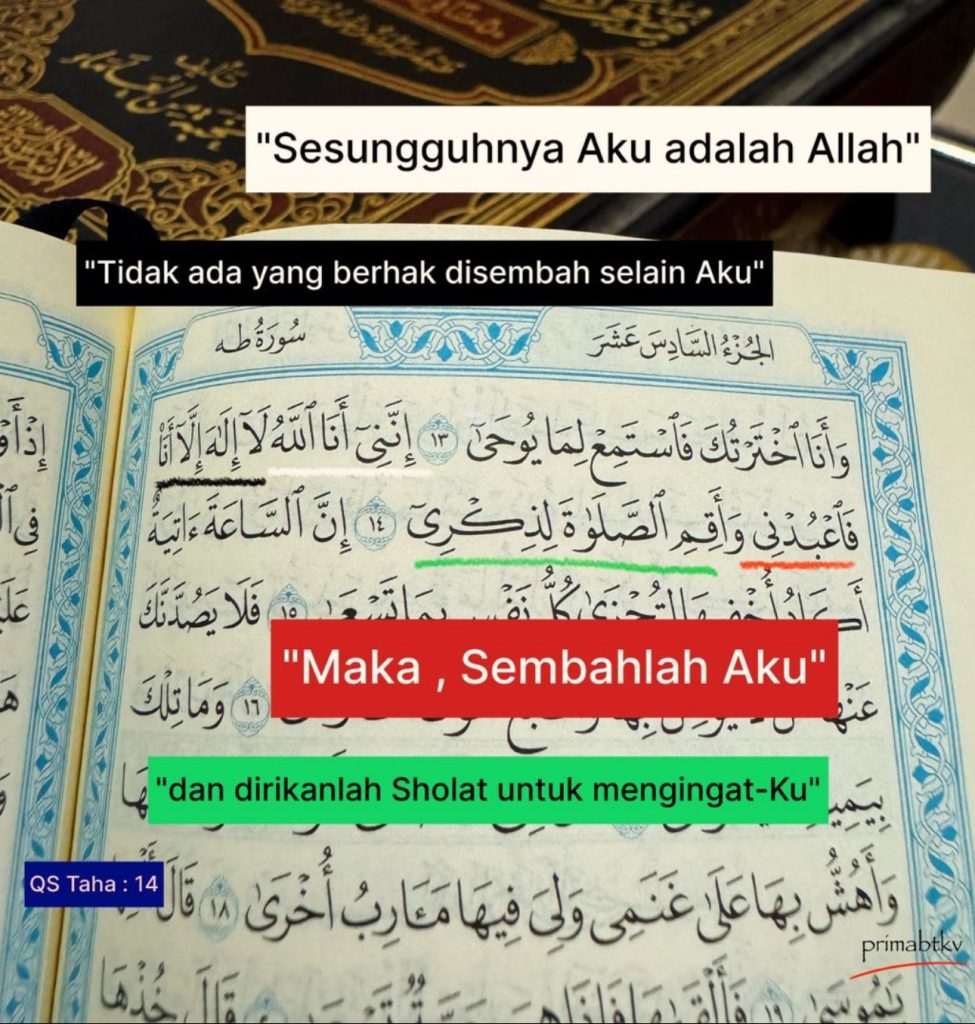 "Sesungguhnya Aku adalah Allah"
"Tidak ada yang berhak disembah selain Aku"
الجُزْءُ السَّادِسَ عَشَرَ سُورَةُ طه
وَأَنَا ٱخْتَرْتُكَ فَٱسْتَمِعْ لِمَا يُوحَىٰٓ ١٣ إِنَّنِىٓ أَنَا ٱللَّهُ لَآ إِلَٰهَ إِلَّآ أَنَا۠
فَٱعْبُدْنِى وَأَقِمِ ٱلصَّلَوٰةَ لِذِكْرِىٓ ١٤ إِنَّ ٱلسَّاعَةَ ءَاتِيَةٌ
كُلُّ نَفْسٍ بِمَا تَسْعَىٰ ١٥ فَلَا يَصُدَّنَّكَ
"Maka , Sembahlah Aku"
١٦ وَمَا تِلْكَ
"dan dirikanlah Sholat untuk mengingat-Ku"
QS Taha : 14
وَأَهُشُّ بِهَا عَلَىٰ غَنَمِى وَلِىَ فِيهَا مَـَٔارِبُ أُخْرَىٰ ١٨ قَالَ
primabtkv
قَالَ خُذْهَا